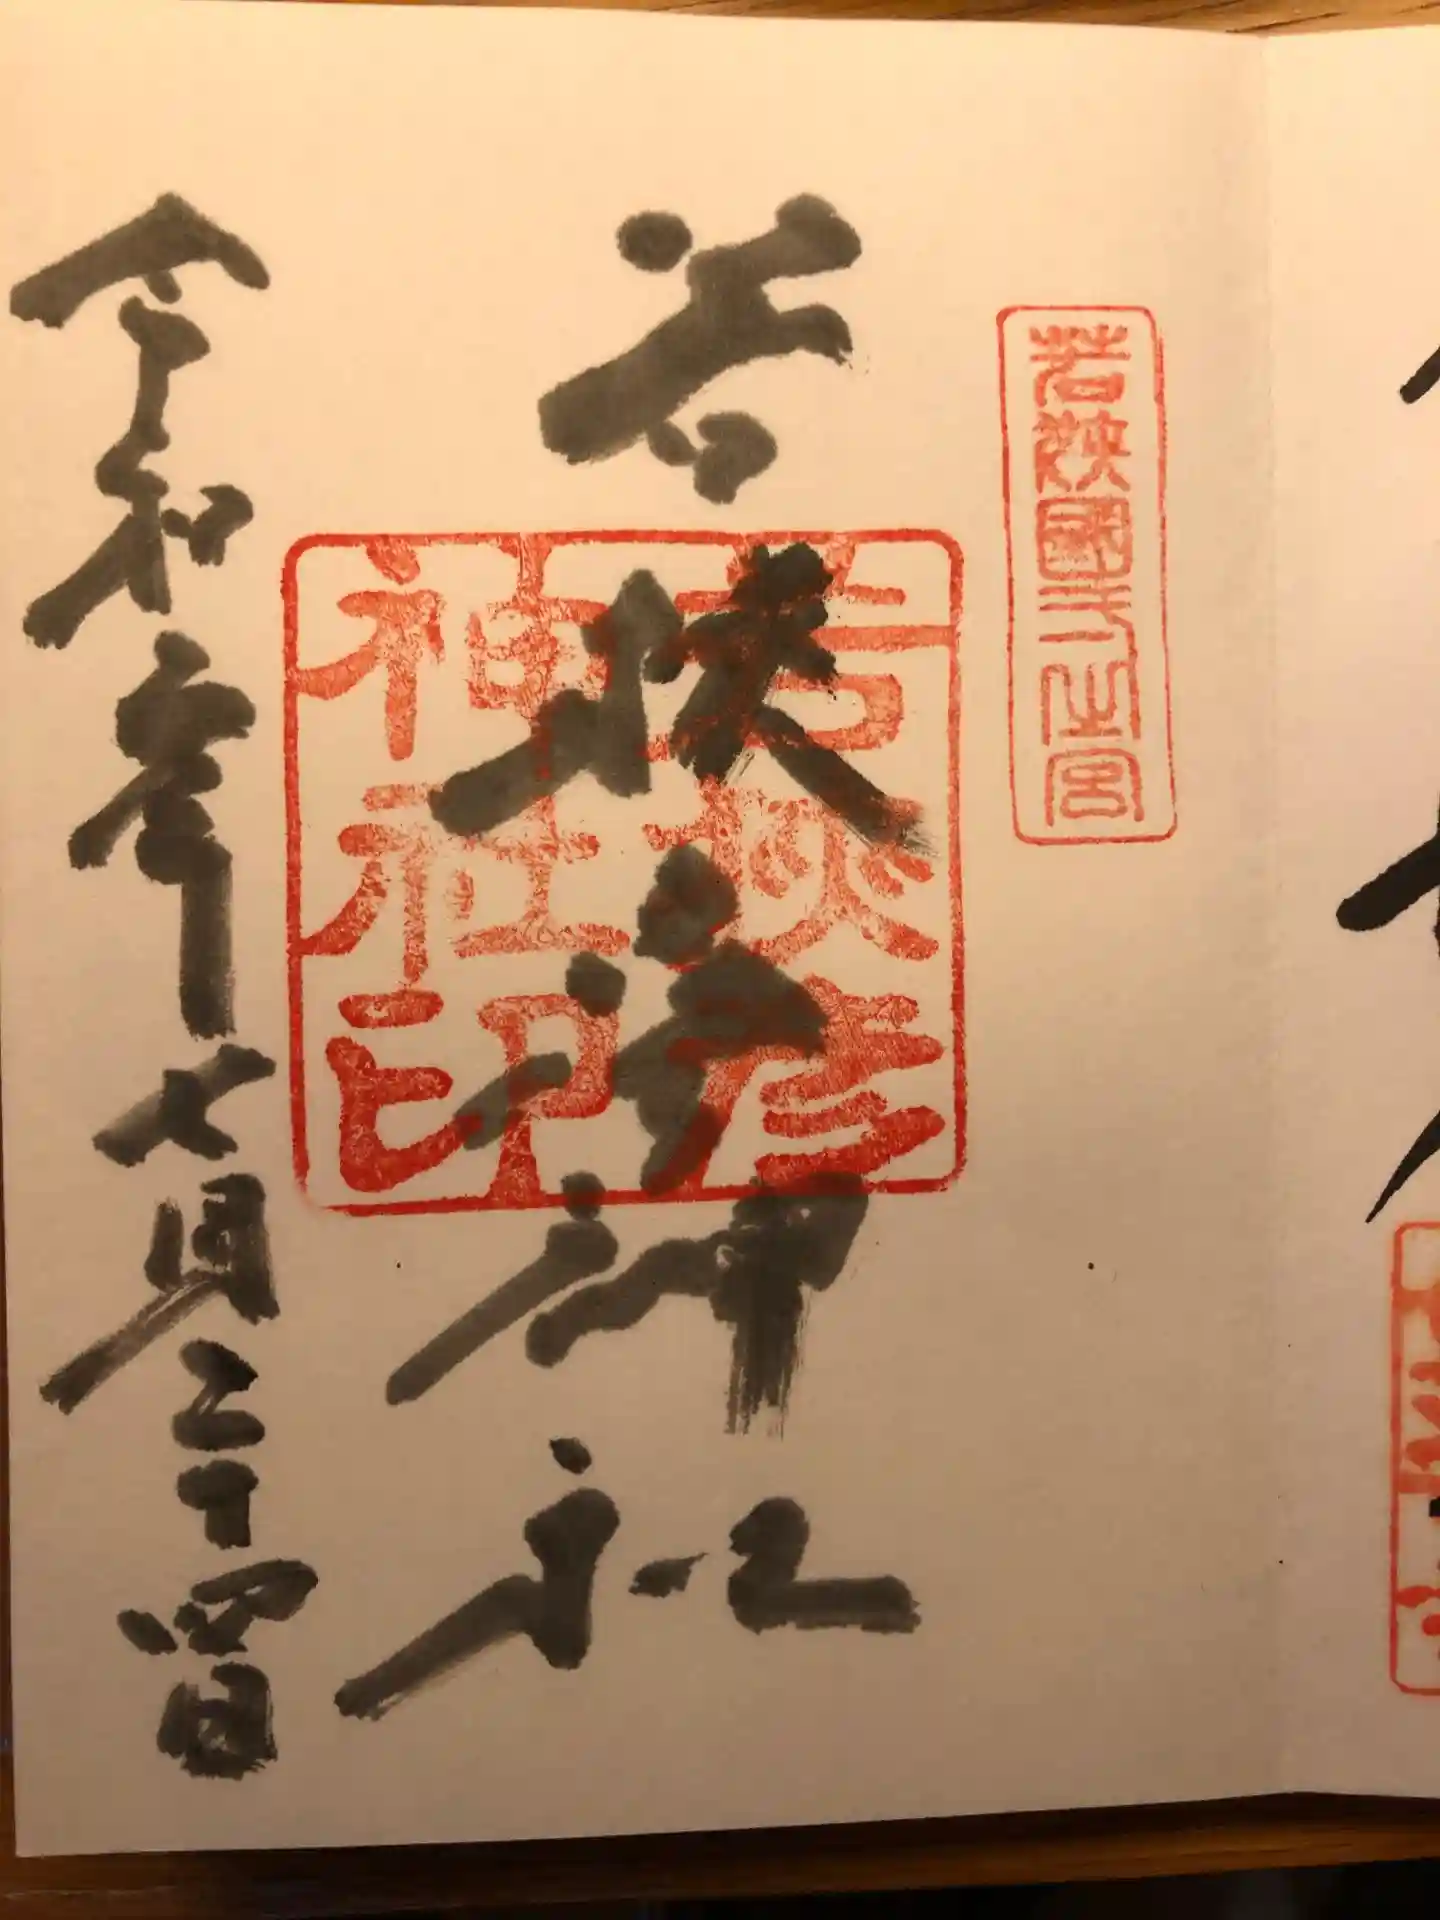 若狹國弌之宮
若狭彦神社
若狭彦
神社印
令和年七月二十四日